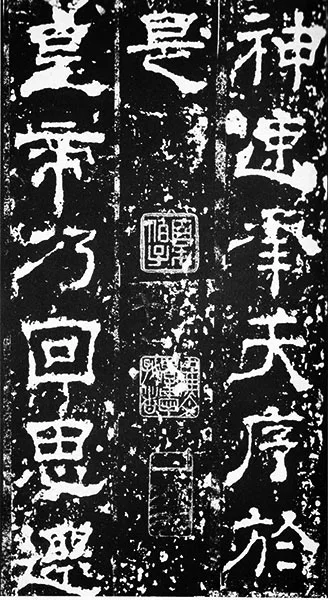 神速承天序於
是
皇帝乃回思遷